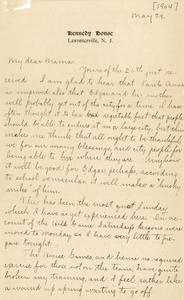 [1904]
May 29.
Kennedy House
Lawrenceville, N. J.
My dear Mama:
Yours of the 26th just re-
ceived. I am glad to hear that
is improved also that Edgar and his
will probably get out of the city for a time. I have
often thought it to be a regrettable fact that people
should be able to exist in a large city, but this
makes me think that all ought to be thankful
for our many blessings, and city people for
being able to live where they are. Anyhow
it will be good for Edgar, perhaps, according
to school vernacular it will make a husky
of him.
This has been the most quiet Sunday
which I have as yet experienced here. On ac-
count of the Hill Game Saturday's lessons were
moved to monday so I have very little to pre-
pare tonight.
The Tennis Courts, and hence no required
exercise for those not on the team, have quite
broken my training, and I feel rather like
a wound up spring waiting to go off